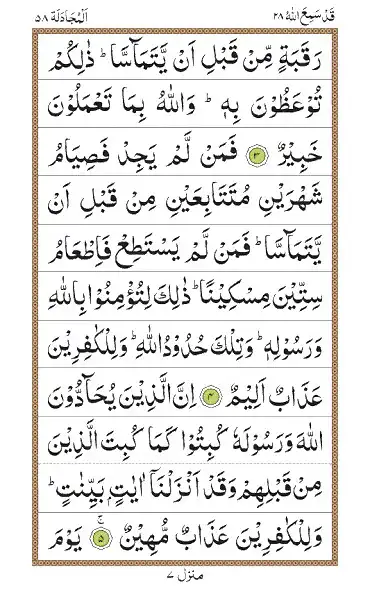 قَدۡ سَمِعَ اللّٰهُ ٢٨ اَلۡمُجَادَلَة ٥٨
رَقَبَةٍ مِّنۡ قَبۡلِ اَنۡ يَّتَمَآسَّا ؕ ذٰلِكُمۡ
تُوۡعَظُوۡنَ بِهٖ ؕ وَاللّٰهُ بِمَا تَعۡمَلُوۡنَ
خَبِيۡرٌ ۝٣ فَمَنۡ لَّمۡ يَجِدۡ فَصِيَامُ
شَهۡرَيۡنِ مُتَتَابِعَيۡنِ مِنۡ قَبۡلِ اَنۡ
يَّتَمَآسَّا ؕ فَمَنۡ لَّمۡ يَسۡتَطِعۡ فَاِطۡعَامُ
سِتِّيۡنَ مِسۡكِيۡنًا ؕ ذٰلِكَ لِتُؤۡمِنُوۡا بِاللّٰهِ
وَرَسُوۡلِهٖ ؕ وَتِلۡكَ حُدُوۡدُ اللّٰهِ ؕ وَلِلۡكٰفِرِيۡنَ
عَذَابٌ اَلِيۡمٌ ۝٤ اِنَّ الَّذِيۡنَ يُحَآدُّوۡنَ
اللّٰهَ وَرَسُوۡلَهٗ كُبِتُوۡا كَمَا كُبِتَ الَّذِيۡنَ
مِنۡ قَبۡلِهِمۡ وَقَدۡ اَنۡزَلۡنَاۤ اٰيٰتٍۭ بَيِّنٰتٍ ؕ
وَلِلۡكٰفِرِيۡنَ عَذَابٌ مُّهِيۡنٌ ۚ ۝٥ يَوۡمَ
منزل ٧